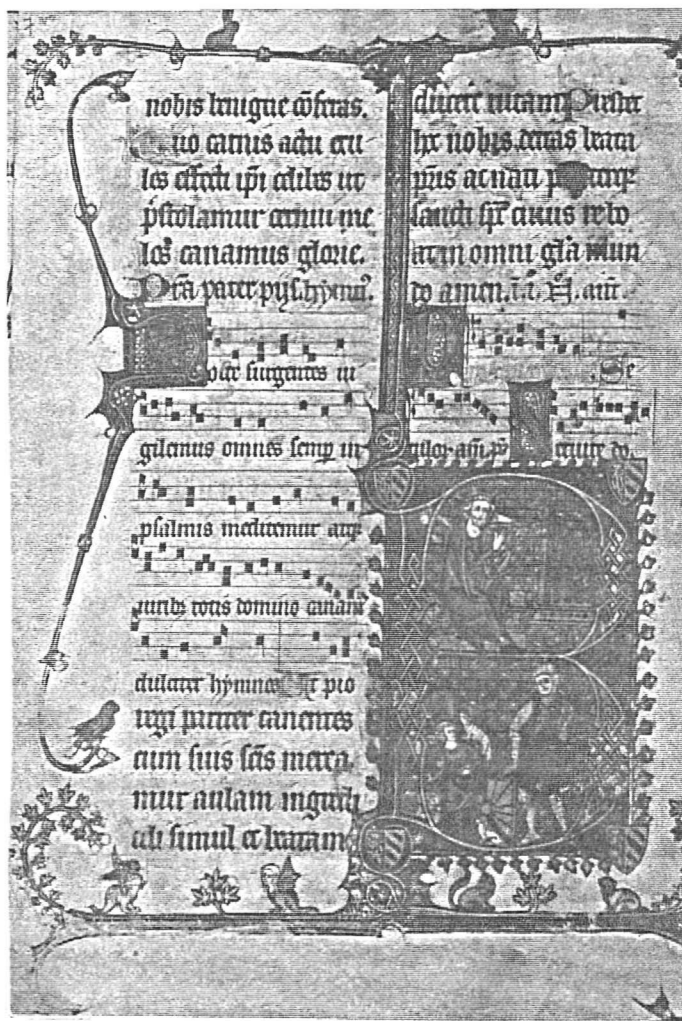 nobis benigne cōferas.
uo carnis actu exu
les effecti ip̄i celibes ut
p̄stolamur cernui me
los canamus glorie.
Prā pater pijs. hymn9.
octe surgentes ui
gilemus omnes semp in
psalmis meditemur atq
viribȝ totis domino canam9
dulciter hymnos Ut pio
regi pariter canentes
cum suis sc̄is merea
mur aulam ingredi
celi simul et beatam
ducere uitam Prestet
hc nobis deitas beata
pr̄is ac nati pariterq
sancti sp̄c cuius rebo
at in omni gl̄a mun
do amen.
Se
culor am̄ p̄s eruite do